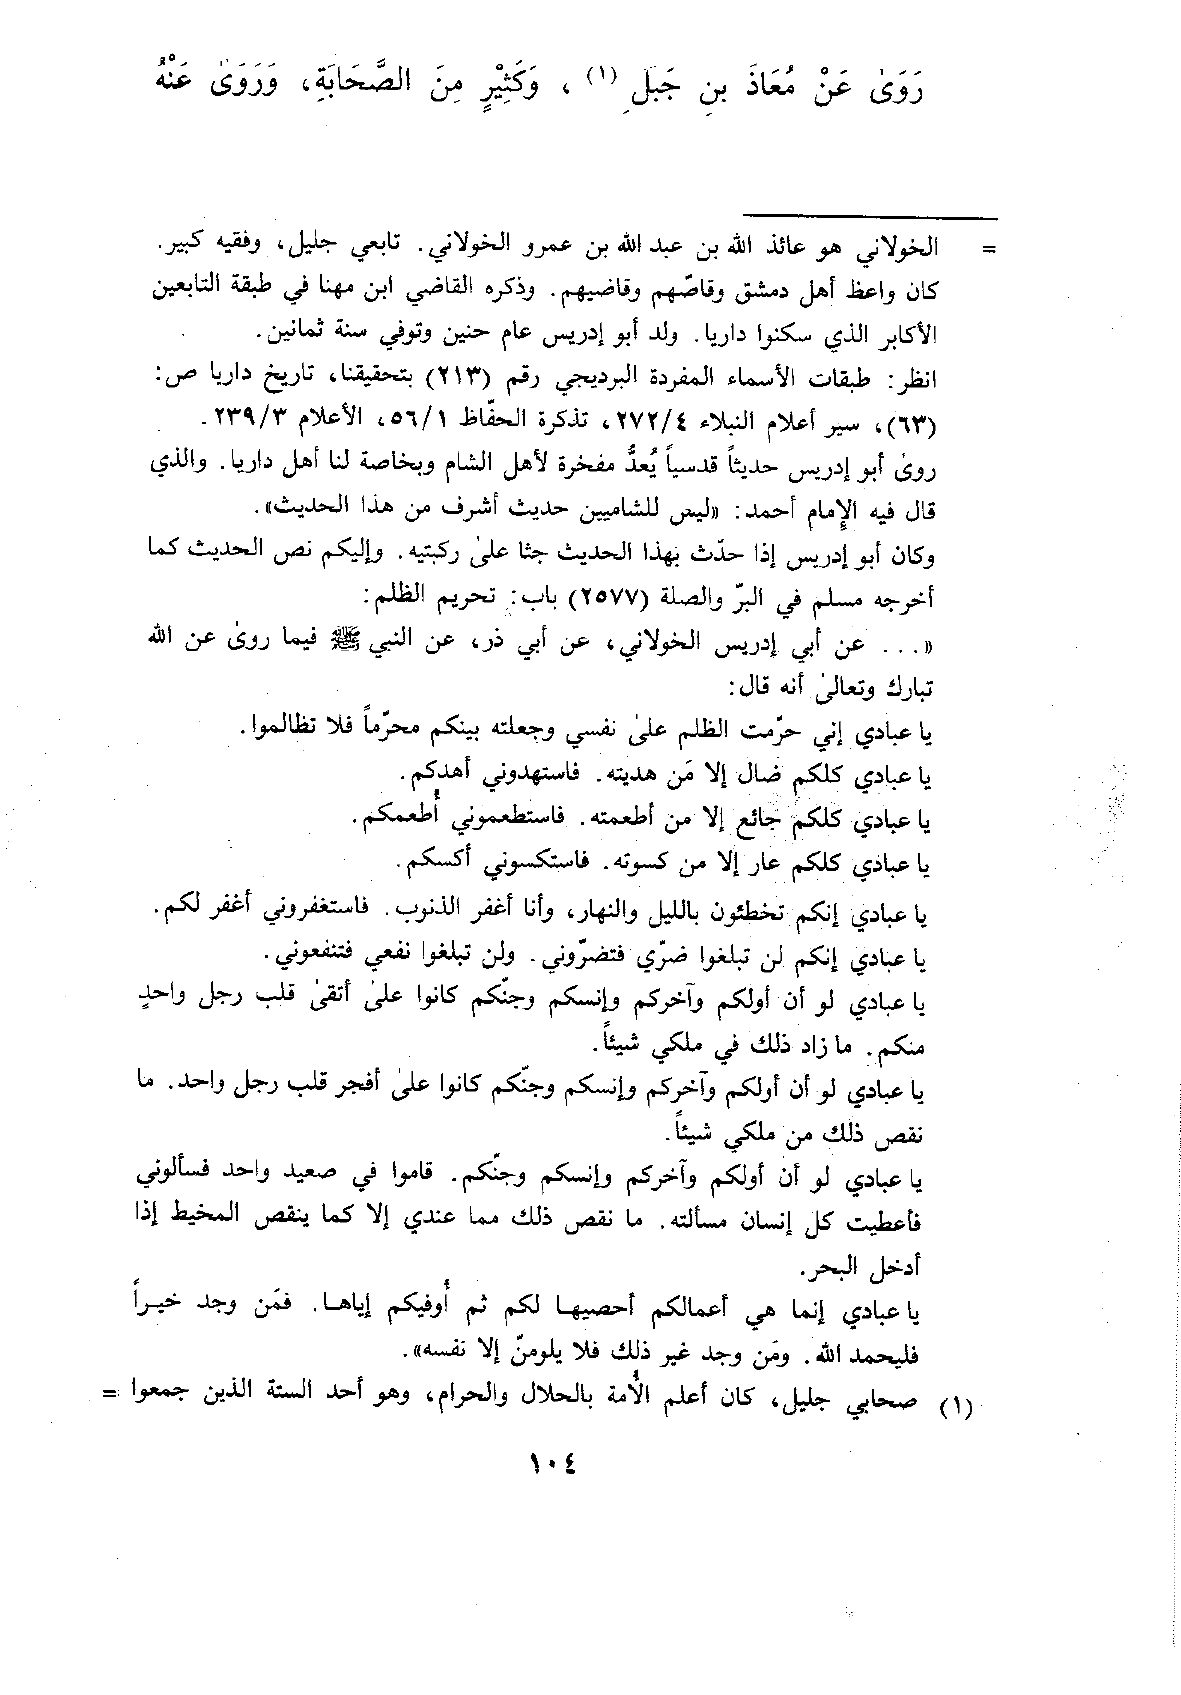 رَوَىٰ عَنْ مُعَاذَ بنِ جَبَلٍ (١) ، وَكَثِيْرٍ مِنَ الصَّحَابَةِ، وَرَوَىٰ عَنْهُ
= الخولاني هو عائذ الله بن عبد الله بن عمرو الخولاني. تابعي جليل، وفقيه كبير.
كان واعظ أهل دمشق وقاصّهم وقاضيهم. وذكره القاضي ابن مهنا في طبقة التابعين
الأكابر الذي سكنوا داريا. ولد أبو إدريس عام حنين وتوفي سنة ثمانين.
انظر: طبقات الأسماء المفردة البرديجي رقم (٢١٣) بتحقيقنا، تاريخ داريا ص:
(٦٣)، سير أعلام النبلاء ٢٧٢/٤، تذكرة الحفّاظ ٥٦/١، الأعلام ٢٣٩/٣.
روىٰ أبو إدريس حديثاً قدسياً يُعدُّ مفخرة لأهل الشام وبخاصة لنا أهل داريا. والذي
قال فيه الإمام أحمد: «ليس للشاميين حديث أشرف من هذا الحديث».
وكان أبو إدريس إذا حدّث بهذا الحديث جثا علىٰ ركبتيه. وإليكم نص الحديث كما
أخرجه مسلم في البرّ والصلة (٢٥٧٧) باب: تحريم الظلم:
«... عن أبي إدريس الخولاني، عن أبي ذر، عن النبي ﷺ فيما روىٰ عن الله
تبارك وتعالىٰ أنه قال:
يا عبادي إني حرّمت الظلم علىٰ نفسي وجعلته بينكم محرّماً فلا تظالموا.
يا عبادي كلكم ضال إلا مَن هديته. فاستهدوني أهدكم.
يا عبادي كلكم جائع إلا من أطعمته. فاستطعموني أُطعمكم.
يا عبادي كلكم عار إلا من كسوته. فاستكسوني أكسكم.
يا عبادي إنكم تخطئون بالليل والنهار، وأنا أغفر الذنوب. فاستغفروني أغفر لكم.
يا عبادي إنكم لن تبلغوا ضرّي فتضرّوني. ولن تبلغوا نفعي فتنفعوني.
يا عبادي لو أن أولكم وآخركم وإنسكم وجنّكم كانوا علىٰ أتقىٰ قلب رجل واحدٍ
منكم. ما زاد ذلك في ملكي شيئاً.
يا عبادي لو أن أولكم وآخركم وإنسكم وجنّكم كانوا علىٰ أفجر قلب رجل واحد. ما
نقص ذلك من ملكي شيئاً.
يا عبادي لو أن أولكم وآخركم وإنسكم وجنّكم. قاموا في صعيد واحد فسألوني
فأعطيت كل إنسان مسألته. ما نقص ذلك مما عندي إلا كما ينقص المخيط إذا
أدخل البحر.
يا عبادي إنما هي أعمالكم أحصيها لكم ثم أُوفيكم إياها. فمَن وجد خيراً
فليحمد الله. ومَن وجد غير ذلك فلا يلومنّ إلا نفسه».
(١) صحابي جليل، كان أعلم الأُمة بالحلال والحرام، وهو أحد الستة الذين جمعوا =
١٠٤